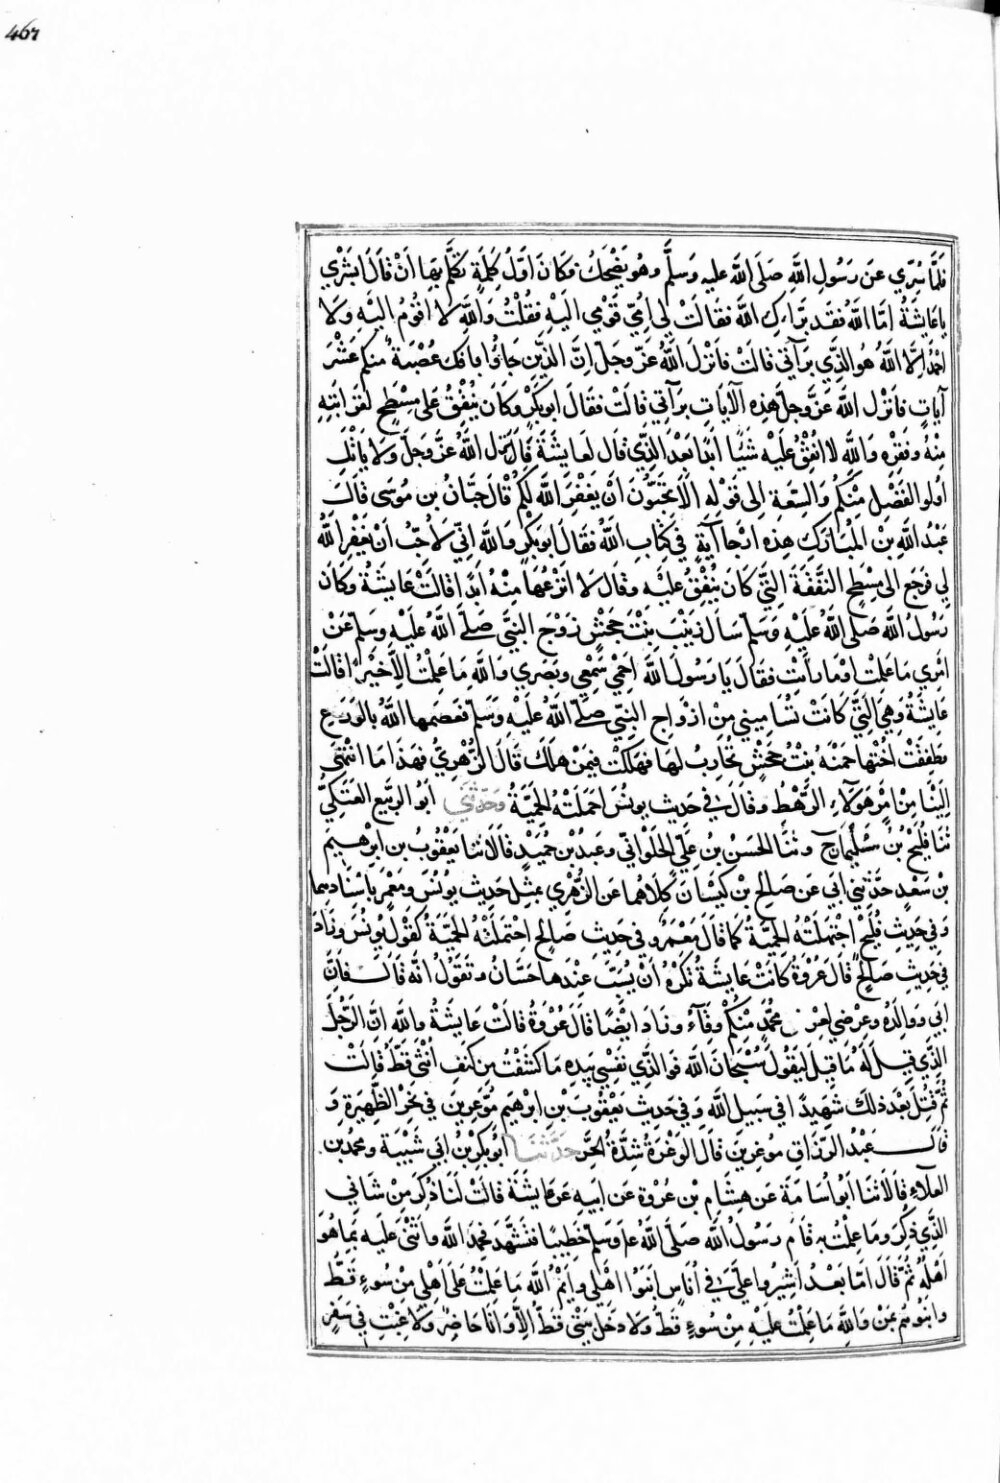 467
فلَمَّا سُرِّي عَن رَسُولِ اللَّهِ صَلَى اللَّه عليه وَسَلَّم وهُو يَضْحَكُ وَكَانَ اَوّلُ كَلِمَةٍ تكَلَّم بِهَا اَنْ قَالَ اَبْشرِي
يا عَايشَةُ امَّا اللَّهُ فقَد بَرّاءكِ اللَّه فقَالَتْ لِي امّي قَوْمي اليْهِ فقُلْتُ وَاللَّهِ لا اقُومُ اليْهِ وَلا
احْمدُ اِلَّا اللَّهَ هُو الَّذِّي بَرآني قالتْ فانْزلَ اللَّهُ عَزّ وجَلّ انّ الّذِينَ جَاؤُا بالافك عُصْبَة منكم عَشْرَ
آيَاتٍ فانزْل اللَّه عَزَّ وجلَّ هذِهِ الآيَاتِ برآتي قَالتْ فقَالَ ابُو بَكرٍْ وكَان يُنْفِقُ عَلى مِسْطَحٍ لقرَابَتِهِ
مِنْهُ وفقَرِه وَاللَّهِ لا انفِقُ عليْهِ شَيًا ابدًا بَعْدَ الذّي قال لعَايشَةَ فانزل اللَّهُ عزَّ وجَلَّ وَلا يَاتَلِ
اُولُو الفَضْلِ مِنكُم وَالسّعَةِ اِلى قوْلِهِ الَا تُحِبّونَ اَنْ يَغْفِرَ اللَّه لكُم قال حِبّانُ بن مُوسَى قَالَ
عَبْدُ اللَّهِ بْن المُبَارَكِ هذِهِ ارْجَا آيَةٍ في كتَابِ اللَّهِ فقَالَ ابُوبَكْرٍ وَاللَّهِ اِنّي لَاُحِبُّ اَنْ يغْفِرَ اللَّهُ
لِي فرَجَع الى مِسْطَحٍ النّفقَةَ التّي كَانَ يُنْفِقُ عليْهِ وَقالَ لا انزعُهَا مِنْهُ اَبَدًا قالتْ عايشَةُ وكَانَ
رَسُولُ اللَّه صَلى اللَّهُ عَليْهِ وَسَلم سَالَ زيْنَبَ بِنْتَ جَحْشٍ زَوْجَ النبيّ صَلى اللَّهُ عليْهِ وَسَلمَ عَنْ
امْري مَا عَلمْتِ اوْ مَا رَايْتِ فقَالَتْ يا رَسُولَ اللَّه احْمي سَمْعِي وبَصَري وَاللَّهِ مَا عَلِمْتُ اِلّا خيْرًا قالَتْ
عَايشَةُ وَهيَ الّتيّ كَانَتْ تُسَامِيني مِنْ ازوَاجِ النّبيّ صلى اللَّهُ عليْهِ وَسَلم فعَصَمها اللَّهُ بالوَرَع
وطَفِقَتْ اُخْتُها حَمْنَة بنتُ جَحْشٍ تحَارِبُ لهَا فهَلكَتْ فيمَنْ هَلكَ قَالَ الزُّهْريُّ فهذا مَا انْتَهَى
اِليْنَا مِنْ امْرِ هَؤلَاءِ الرَّهْطِ وقالَ في حَديثِ يونُسَ احْتمَلتْهُ الحَمِيَّةُ وَحَدّثَني ابو الرّبيعِ العَتكيُّ
ثنَا فُليْحُ بْنُ سُليْمانَ ح وثنَا الحَسَنُ بن عَليّ الحلْوَانيّ وعَبْدُ بْن حُميْدٍ قالَا ثنَا يَعْقُوبُ بن ابْرهِيمَ
بْن سَعْدٍ حَدّثني ابي عَن صَالحِ بْن كَيْسَانَ كِلَاهُما عَن الزُّهْري بمثِلِ حَديثِ يوُنسَ وَمَعْمَر باسنَادِهما
وَفي حَدِيثِ فُليْحٍ اجْتَهَلتْهُ الحميّةُ كَما قَالَ مَعْمَرٌ وفي حَديثِ صَالحٍ احْتمَلتْهُ الحَميّةُ كقَوْلِ يونُسَ وزَادَ
في حَدِيثِ صَالحٍ قَالَ عُرْوَةُ كانَتْ عَايشَةُ تَكرَهُ اَنْ يُسَبّ عِنْدَها حَسّانُ وتقَولُ انّه قَالَ فاِنَّ
ابي ووَالِدَهُ وعِرْضي لعِرْض محمّدٍ منكُمْ وقَآءُ وزَادَ ايْضًا قالَ عُرْوَةُ قالَتْ عَايشَةُ وَاللَّهِ انّ الرّجُلَ
الّذّي قيلَ لَهُ مَا قيلَ ليَقُولُ سُبْحَانَ اللَّهِ فوَ الّذي نفْسِي بيَدِهِ مَا كَشَفْتُ مِن كنَفِ اُنْثى قطّ قالَتْ
ثُمَّ قُتِلَ بَعْدَ ذلكَ شَهِيدًا في سَبِيلِ اللَّهِ وفي حَديثِ يعْقُوبَ بْنِ ابْرهِيمَ مُوْعِرينَ في نَحْرِ الظَّهيَرةِ وَ
قَالَ عَبْدُ الرّزّاق مُوغِرينَ قالَ الوَغْرَةُ شدَّةُ الحَرِّ حَدَّثنَا ابُو بَكرِ بْنُ ابي شَيْبَةَ ومحمدُ بن
العَلَاءِ قالَا ثنَا ابُو اُسَامَةَ عَن هِشَامِ بْنِ عُرْوَةَ عَن ابيهِ عَن عَايشَةَ قالَتْ لمّا ذُكرَ مِنْ شَاني
الّذِي ذُكِرَ وَما عَلِمْتُ بِه قَامَ رَسُولُ اللَّهِ صَلى اللَّهُ علَيه وَسَلم خَطِيبًا فتشَهّدَ فحَمِدَ اللَّهَ واثْنى عليه بمَا هُوَ
اَهْلهُ ثُمَّ قالَ امّا بَعْدُ اشِيرُوا عَليَّ في اُنَاسٍ ابَنوُا اهْلي وايمُ اللَّهِ مَا عَلمْتُ عَلى اهْلي مِنْ سُوءٍ قَطّ
وابَنُوهُم بمَنْ وَاللَّهِ مَا عَلِمْتُ عليْهِ مِنْ سُوءٍ قطُّ ولا دَخَل بَيْتي قَطّ اِلّا وَانَا حَاضِرٌ ولا غِبْتُ في سَفَرٍ